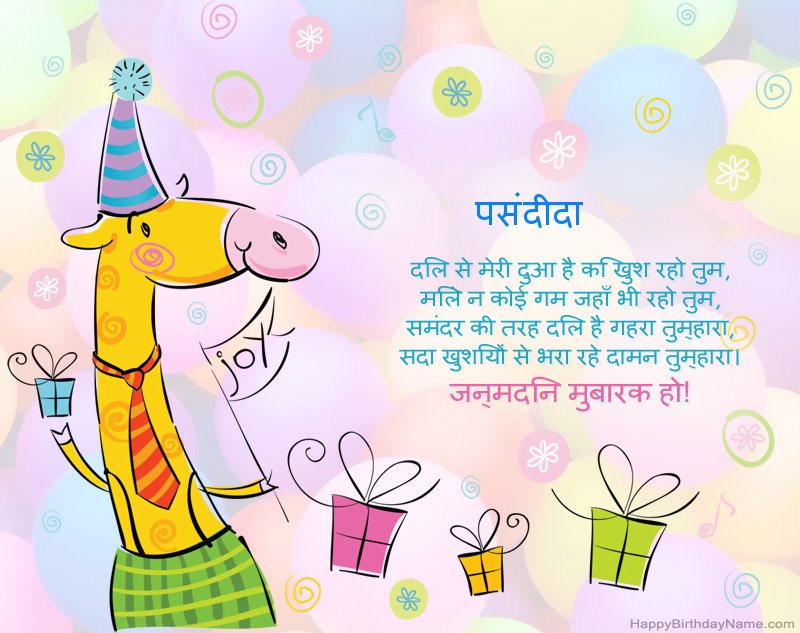 पसंदीदा
दिल से मेरी दुआ है कि खुश रहो तुम,
मिले न कोई गम जहाँ भी रहो तुम,
समंदर की तरह दिल है गहरा तुम्हारा,
सदा खुशियों से भरा रहे दामन तुम्हारा।
जन्मदिन मुबारक हो!
joy
HappyBirthdayName.com